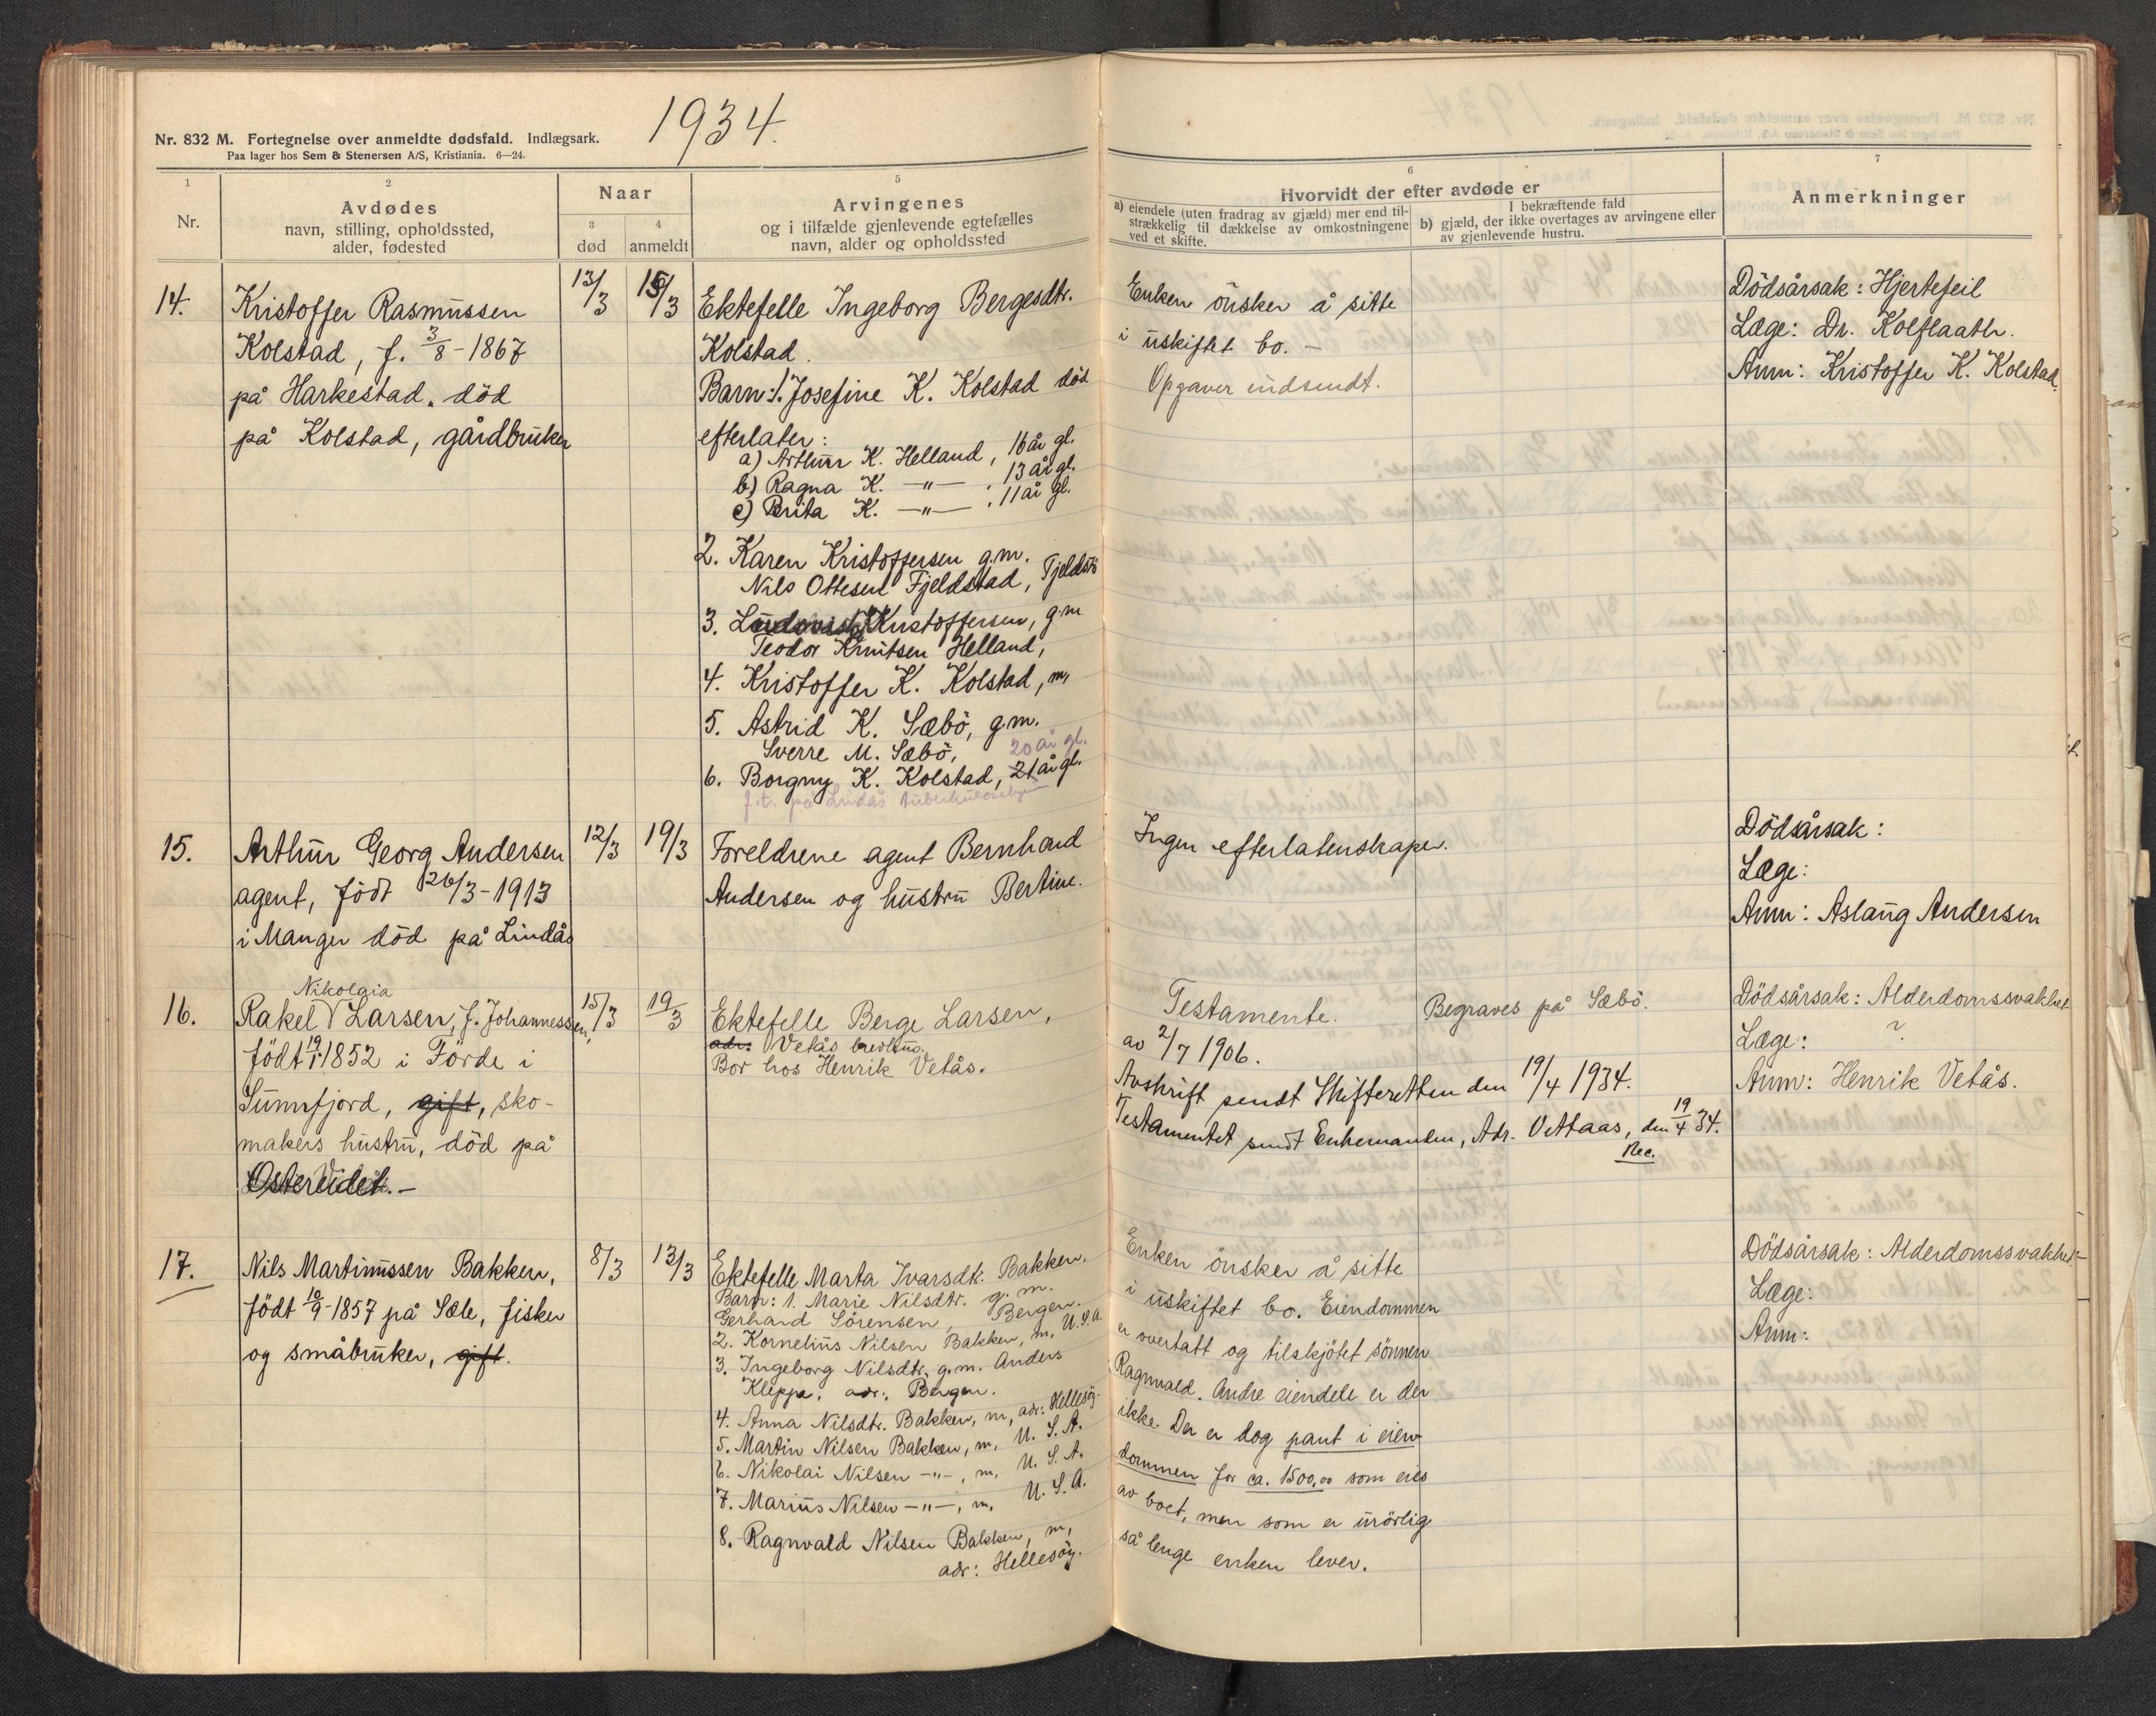 1934.
Nr. 832 M. Fortegnelse over anmeldte dødsfald. Indlægsark.
Paa lager hos Sem & Stenersen A/S, Kristiania. 6—24.
1
Nr.
2
Avdødes
navn, stilling, opholdssted,
alder, fødested
Naar
3
død
4
anmeldt
5
Arvingenes
og i tilfælde gjenlevende egtefælles
navn, alder og opholdssted
6
Hvorvidt der efter avdøde er
a) eiendele (uten fradrag av gjæld) mer end til-
strækkelig til dækkelse av omkostningene
ved et skifte.
I bekræftende fald
b) gjæld, der ikke overtages av arvingene eller
av gjenlevende hustru.
7
Anmerkninger
14.
Kristoffer Rasmussen
Kolstad, f. 3/8-1867
på Harkestad. död
på Kolstad, gårdbruker
13/3
15/3
Ektefelle Ingeborg Bergesdtr.
Kolstad.
Barn: 1. Josefine K. Kolstad död
efterlater:
a) Arthur K. Helland, 16 år gl.
b) Ragna K. —"— , 13 år gl.
c) Brita K. —"— , 11 år gl.
2. Karen Kristoffersen g.m.
Nils Ottesen Fjeldstad, Fjeldstö
3. Kristoffersen, g.m
Teodor Knutsen Helland,
4. Kristoffer K. Kolstad, m,
5. Astrid K. Sæbö, g.m.
Sverre M. Sæbö,
20 år gl.
6. Borgny K. Kolstad, 21 år gl.
f.t. på Lindås
Enken önsker å sitte
i uskiftet bo. —
Opgaver indsendt.
Dödsårsak: Hjertefeil
Læge: Dr. Kolflaath.
Anm: Kristoffer K. Kolstad.
15.
Arthur Georg Andersen
agent, födt 26/3-1913
i Manger död på Lindås
12/3
19/3
Foreldrene agent Bernhard
Andersen og hustru Bertine.
Ingen efterlatenskaper.
Dödsårsak:
Læge:
Anm: Aslaug Andersen
16.
Nikolaia
Rakel V Larsen, f. Johannessen,
födt 19/1 1852 i Förde i
Sunnfjord, gift, sko-
makers hustru, död på
Ostereidet. —
15/3
19/3
Ektefelle Berge Larsen,
adr: Vetås brevhus.
Bor hos Henrik Vetås.
Testamente.
av 2/7 1906.
Avskrift sendt Skifteretten den 19/4 1934.
Testamentet sendt Enkemanden, Adr. Vettaas, den 19/4 34.
Rec.
Begraves på Sæbö.
Dödsårsak: Alderdomssvakhet
Læge: ?
Anm: Henrik Vetås.
17.
Nils Martinussen Bakken,
födt 10/9-1857 på Sæle, fisker
og småbruker, gift.
8/3
13/3
Ektefelle Marta Ivarsdtr. Bakken.
Barn: 1. Marie Nilsdtr. g.m.
Gerhard Sörensen, Bergen.
2. Kornelius Nilsen Bakken, m, U.S.A.
3. Ingeborg Nilsdtr. g.m. Anders
Kleppe, adr: Bergen.
4. Anna Nilsdtr. Bakken, m, adr: Hellesöy.
5. Martin Nilsen Bakken, m, U.S.A.
6. Nikolai Nilsen —"—, m, U.S.A.
7. Marius Nilsen —"—, m, U.S.A.
8. Ragnvald Nilsen Bakken, m,
adr: Hellesöy.
Enken önsker å sitte
i uskiftet bo. Eiendommen
er overtatt og tilskjötet sönnen
Ragnvald. Andre eiendele er der
ikke. Der er dog pant i eien-
dommen for ca. 1500,00 som eies
av boet, men som er urörlig
så lenge enken lever.
Dödsårsak: Alderdomssvakhet
Læge:
Anm: